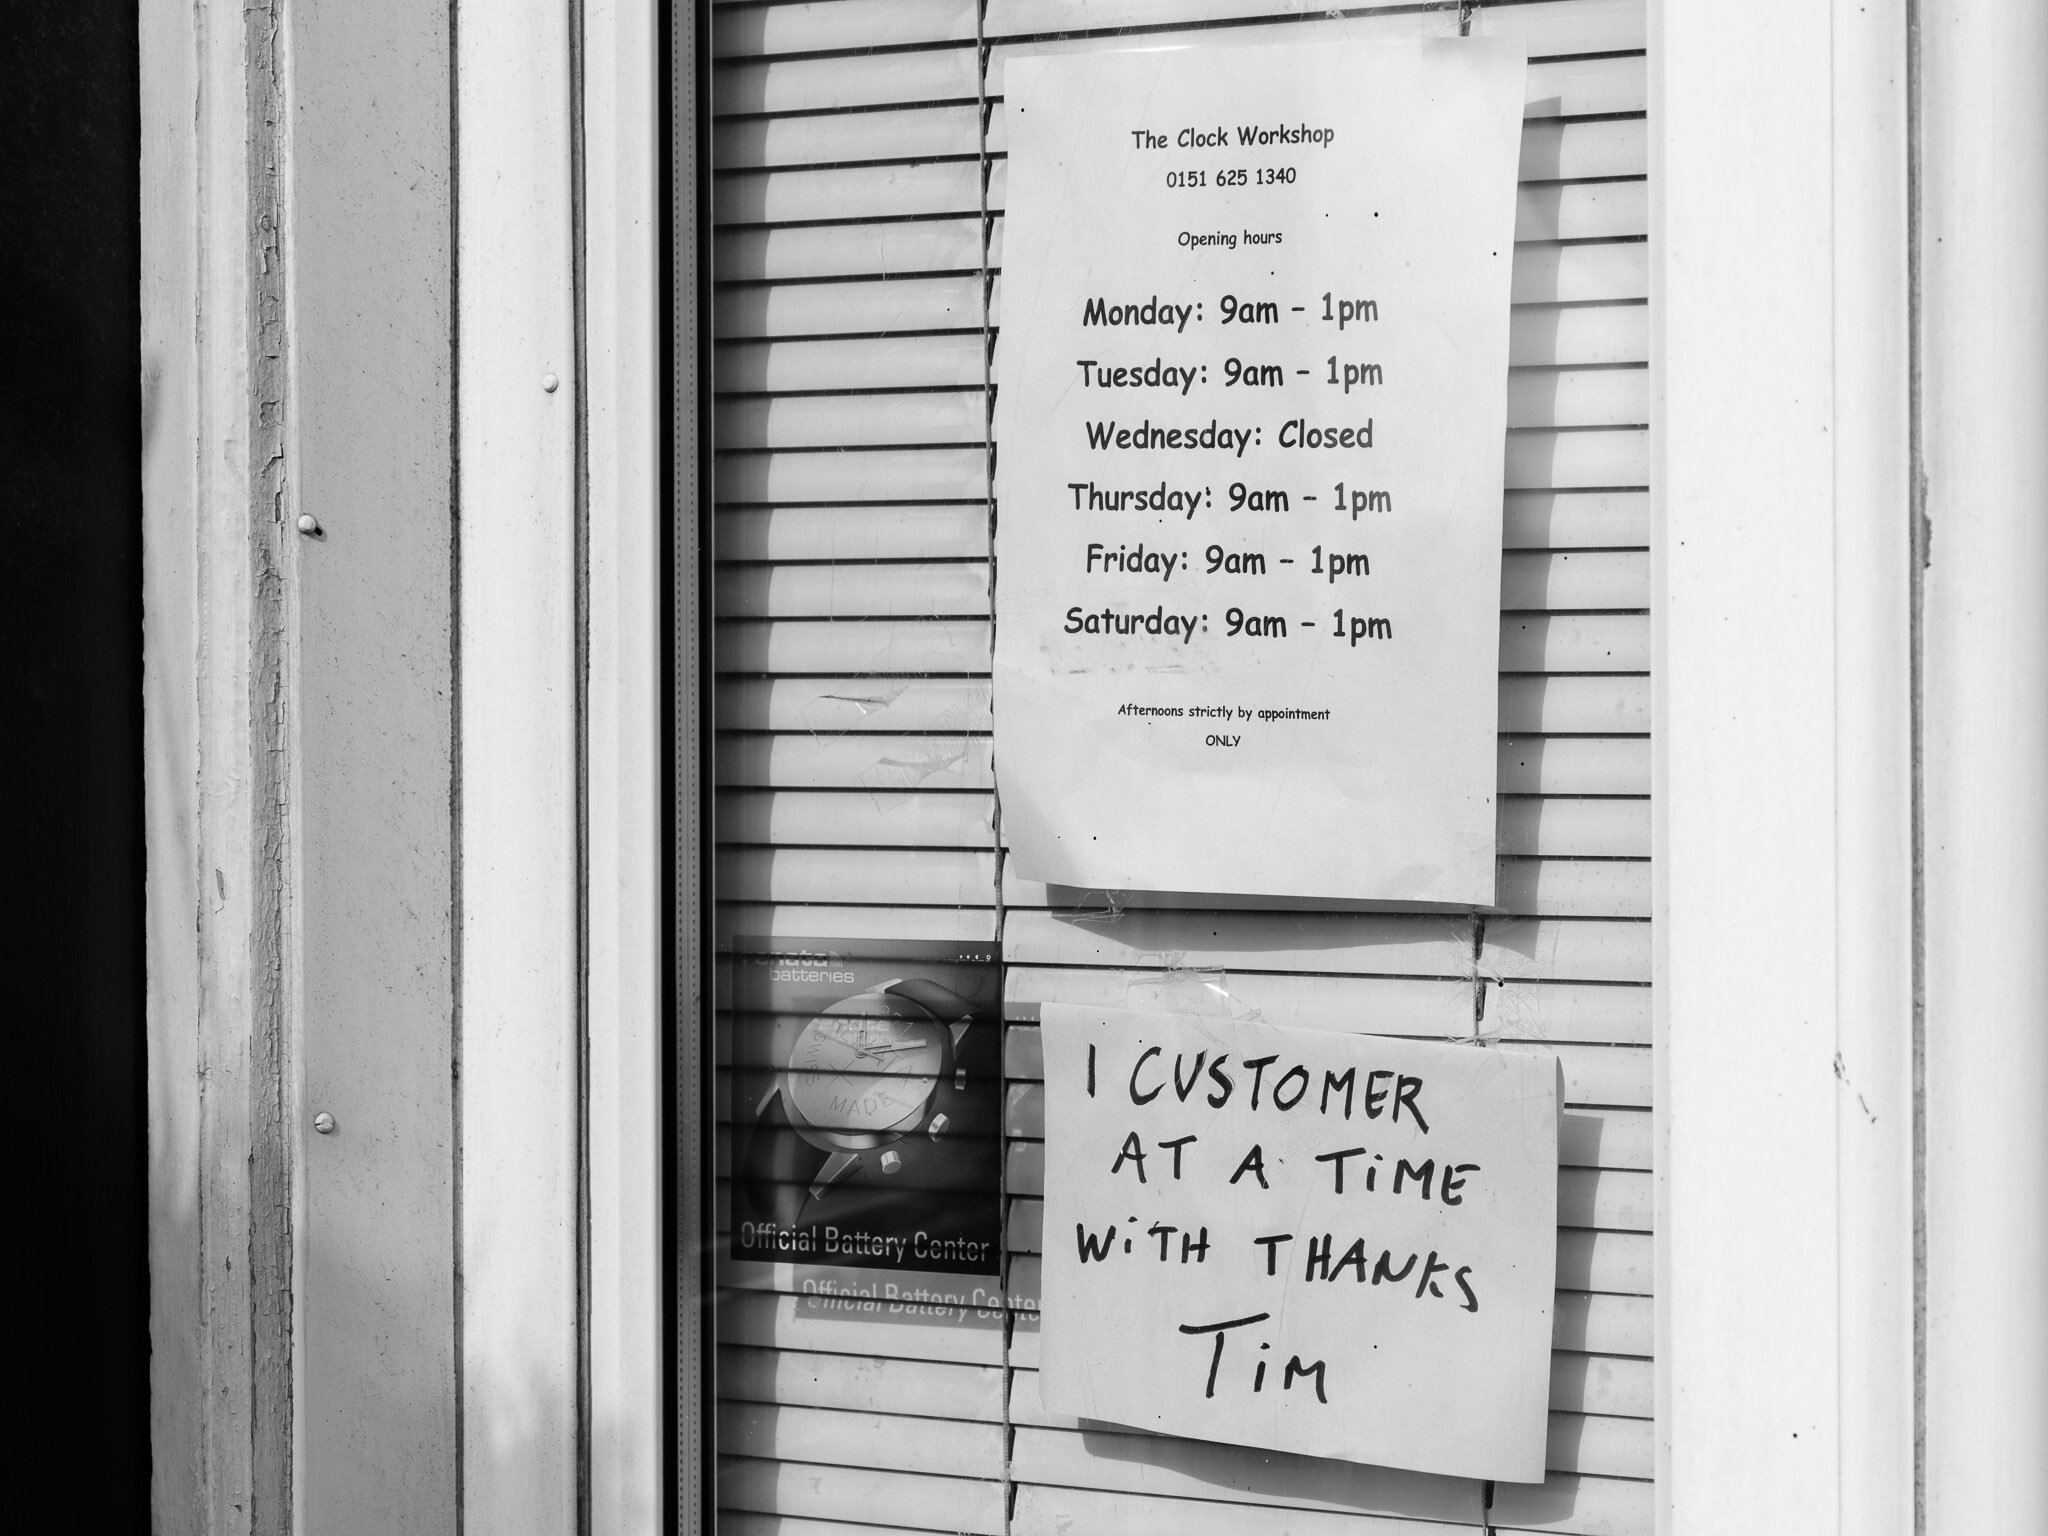 The Clock Workshop
0151 625 1340
Opening hours
Monday: 9am - 1pm
Tuesday: 9am - 1pm
Wednesday: Closed
Thursday: 9am - 1pm
Friday: 9am - 1pm
Saturday: 9am - 1pm
Afternoons strictly by appointment
ONLY
batteries
MADE
Official Battery Center
Official Battery Cente
I CUSTOMER
AT A TiME
WiTH THANKS
TiM